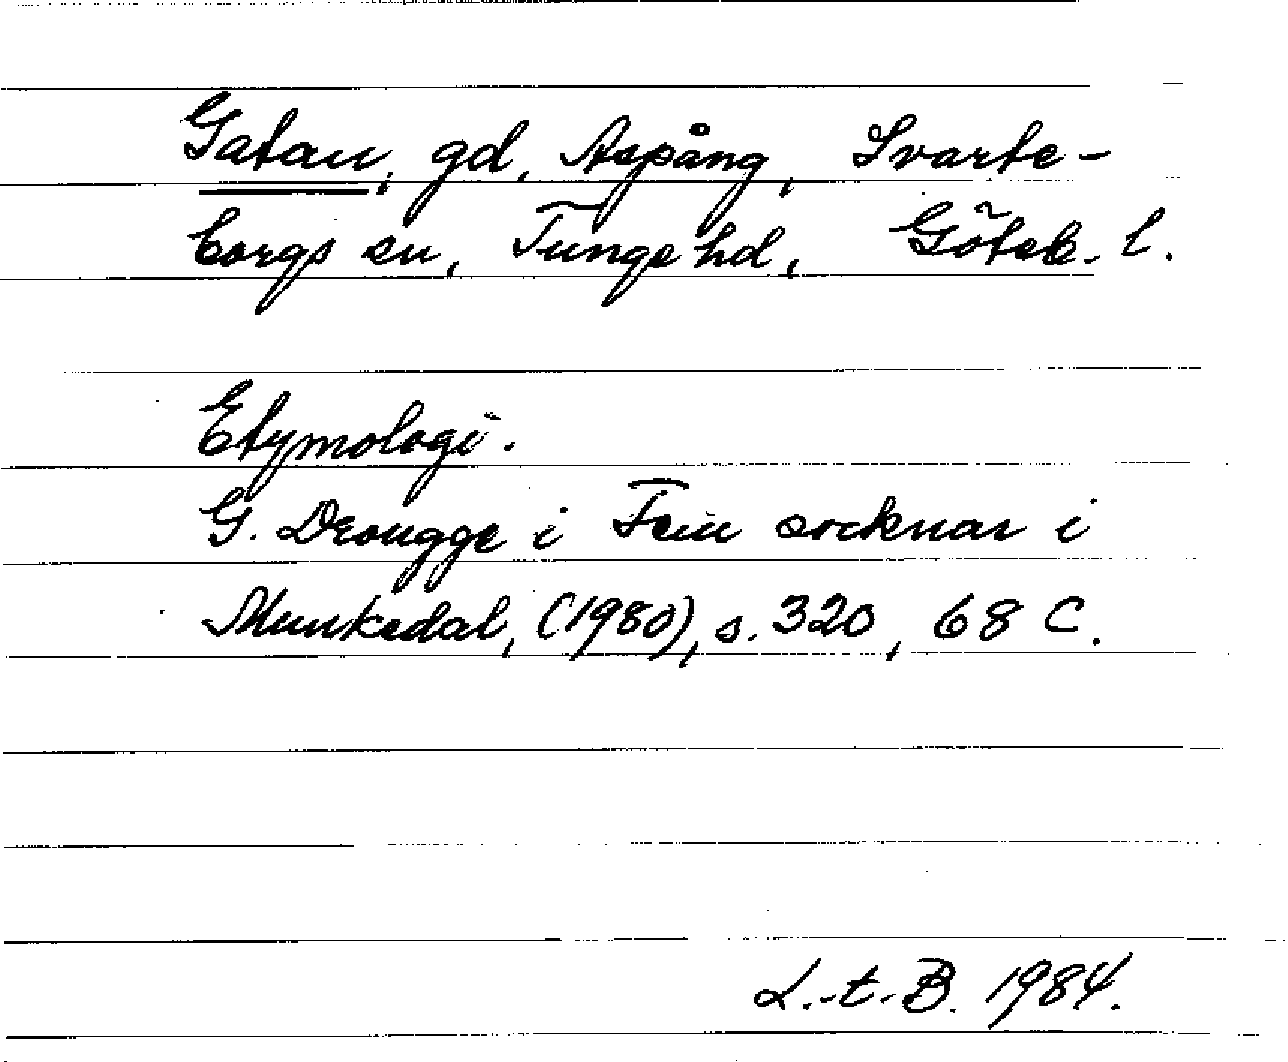 Gatan, gd, Aspång, Svarte-
borgs sn, Tunge hd, Göteb. l.
Etymologi.
G. Drougge i Fem socknar i
Munkedal, (1980), s. 320, 68 C.
L.-t.-B. 1984.